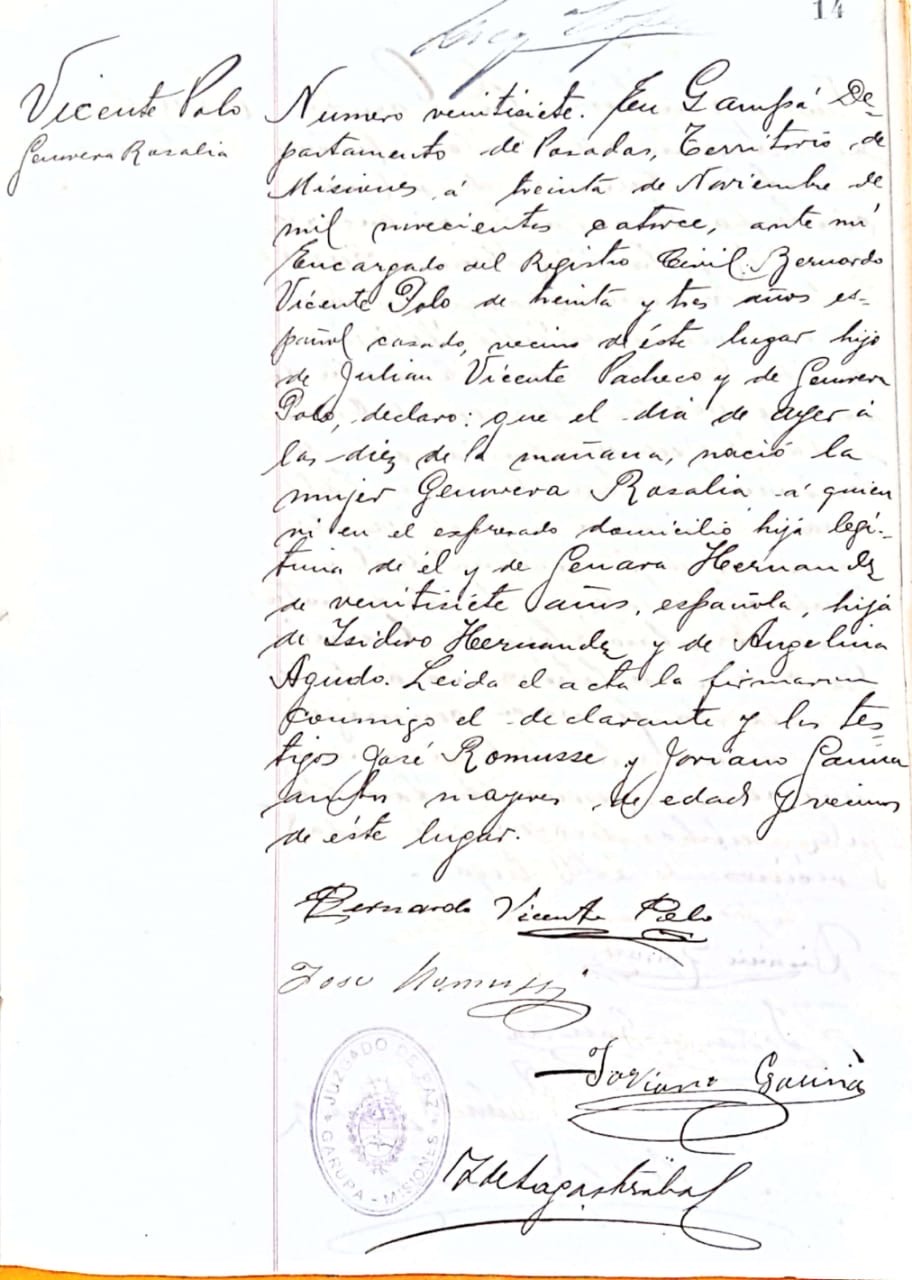 14
Vicente Polo
Genovera Rosalia
Numero veintisiete. En Garupá De-
partamento de Posadas, Territorio de
Misiones á treinta de Noviembre de
mil novecientos catorce, ante mí
Encargado del Registro Civil: Bernardo
Vicente Polo de treinta y tres años es-
pañol casado, vecino de éste lugar hijo
de Julian Vicente Pacheco y de Genovera
Polo, declaro: que el dia de ayer á
las diez de la mañana, nació la
mujer Genovera Rosalia á quien
ví en el expresado domicilio hija legí-
tima de él y de Genara Hernandez
de veintisiete años, española, hija
de Isidro Hernandez y de Angelina
Agudo. Leida el acta la firmaron
conmigo el declarante y los tes-
tigos José Romusse y Joriano Gauna
ambos mayores de edad y vecinos
de éste lugar.
Bernardo Vicente Polo
Jose
Joriano Gauna
JUZGADO DE PAZ
GARUPA - MISIONES